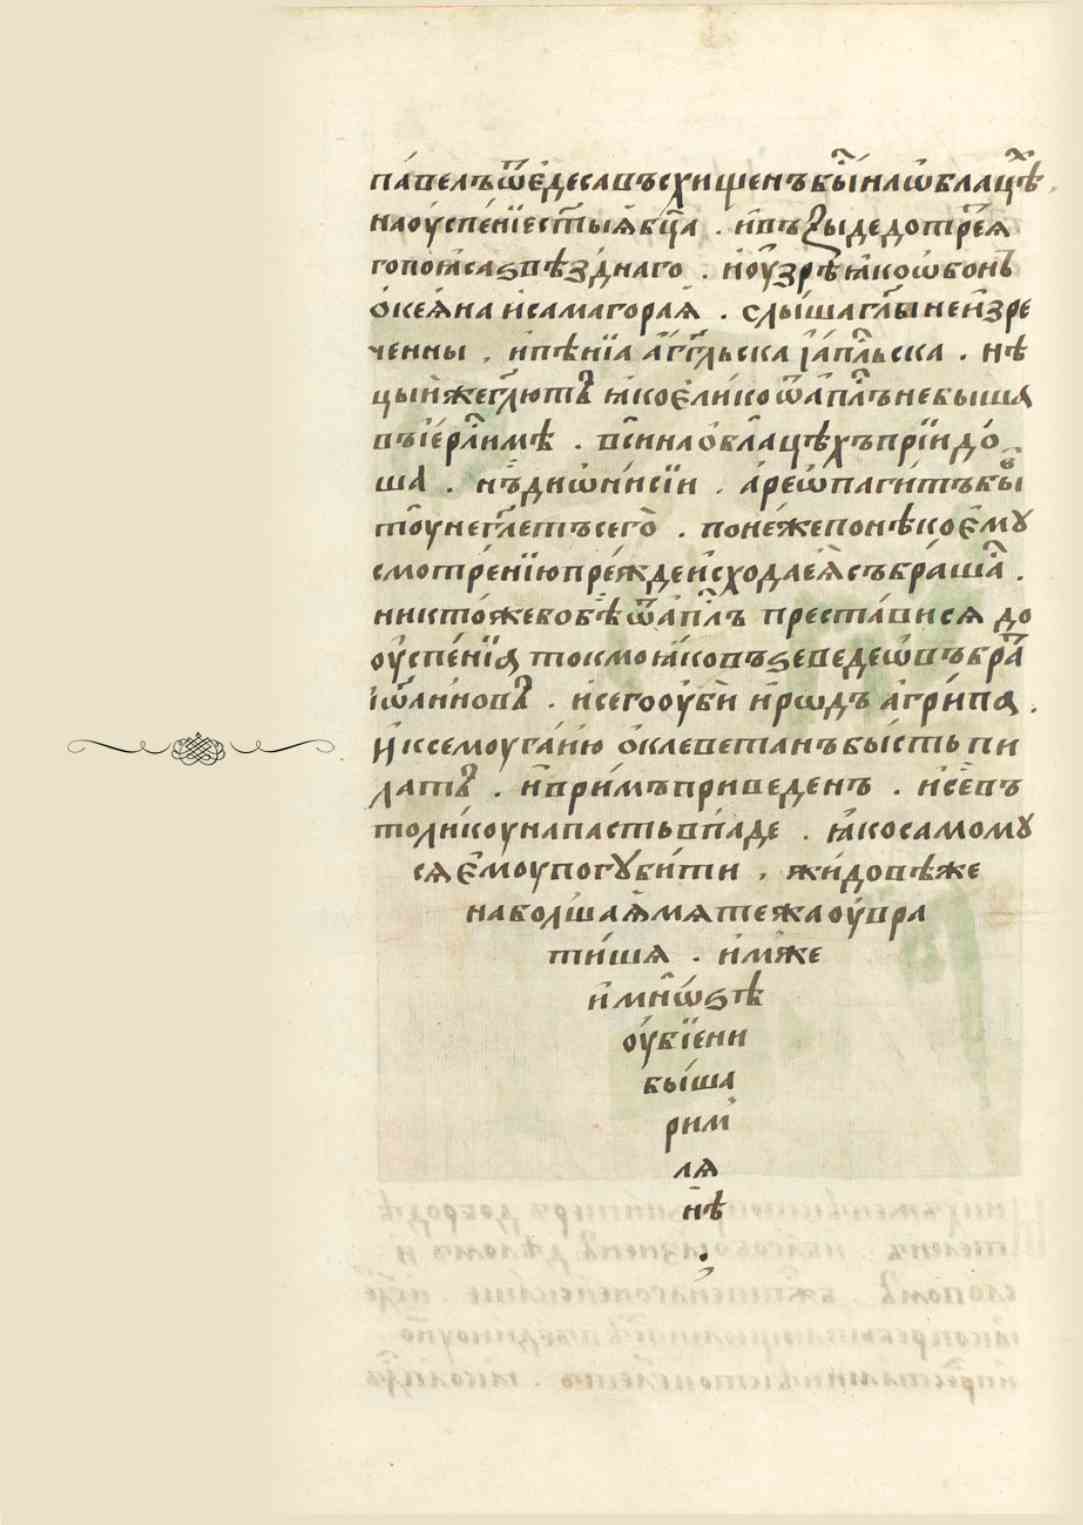 па́велъ ѿ є҆десавъсхищенъбы́ н҆аѡ҆блацѣ
наоу҆спе́нїест҃ыѧ҆бц҃а . и҆въꙁыдедотре́ѧ
гопоꙗсаѕвѣзднаго . и҆оу҆зрѣꙗкоѡбонъ
ѻ҆кеѧ́на и҆самагораѧ̀ . слы́шагл҃ы неи҆зре
ченны , и҆пѣнїа а҆гг҃льска і҆а҆пл҃ьска . нѣ
цыи҆жегл҃ютъ ꙗкоє҆ли́коѿа҆пл҃ъ небыша
въі҆ер҃лимѣ . вси наѻ҆блацѣхъ прїидо́
ша . нъ дїѡни́сїи . а҆реѡпаги́тъ бы́
тоу негл҃етъ сего̀ . поне́же понѣкоє҆мꙋ
смотре́нїю пре́жде и҆схода еѧ̀ събра́ша .
никто́же бо бѣ ѿ а҆пл҃ъ преста́висѧ до
оу҆спе́нїа токмо ꙗ҆ковъ ѕеведеѡвъ бра́
іѡ҆анновъ . и҆сего оу҆би̂ и҆рѡдъ а҆гри́па .
и҆ксемоу га́ию ѻ҆клеветанъ бы́сть пи
латъ . и҆вримъ приведенъ . и҆сѐ въ
толи́коу напасть впаде . ꙗкосамомꙋ
сѧ є҆моу погꙋби́ти , жидовѣже
на болшаѧ̀ мѧтежа оу҆вра
ти́шѧ . и҆мже
и҆ мнѡѕѣ
оу҆бїени
бы́ша
рим
лѧ
нѣ